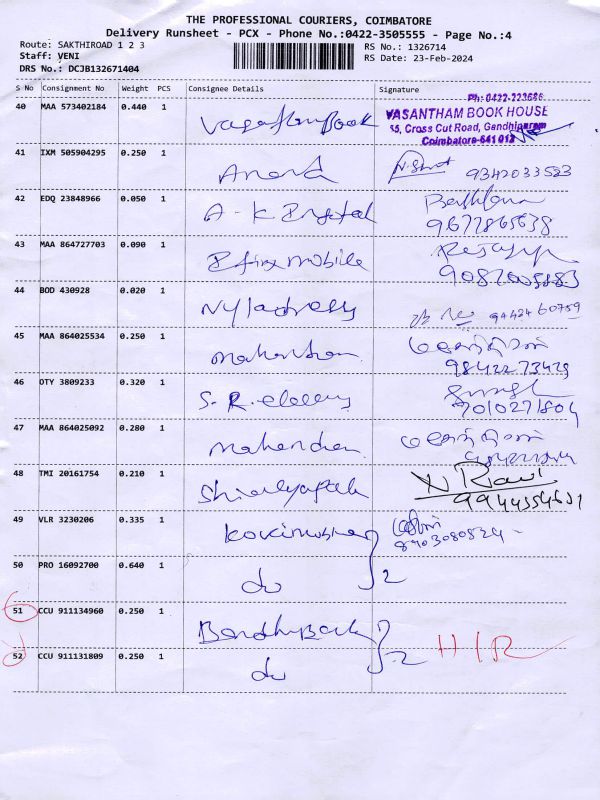 THE PROFESSIONAL COURIERS, COIMBATORE
Delivery Runsheet - PCX - Phone No.:0422-3505555 - Page No.:4
Route: SAKTHIROAD 1 2 3
RS No.: 1326714
Staff: VENI
RS Date: 23-Feb-2024
DRS No.: DCJB132671404
S No Consignment No Weight PCS Consignee Details Signature
Ph: 0422-223686
40 MAA 573402184 0.440 1 Vasantham Book VASANTHAM BOOK HOUSE
55, Cross Cut Road, Gandhipuram
Coimbatore-641 012
41 IXM 505904295 0.250 1 Anand 9342033523
42 EDQ 23848966 0.050 1 A-K
43 MAA 864727703 0.090 1 mobile
44 BOD 430928 0.020 1 9442460759
45 MAA 864025534 0.250 1 Mahendran
9842273429
46 OTY 3809233 0.320 1 S.R.
7010271804
47 MAA 864025092 0.280 1 Mahendran
48 TMI 20161754 0.210 1 Ravi
49 VLR 3230206 0.335 1
50 PRO 16092700 0.640 1 do 2
51 CCU 911134960 0.250 1
52 CCU 911131809 0.250 1 do 2